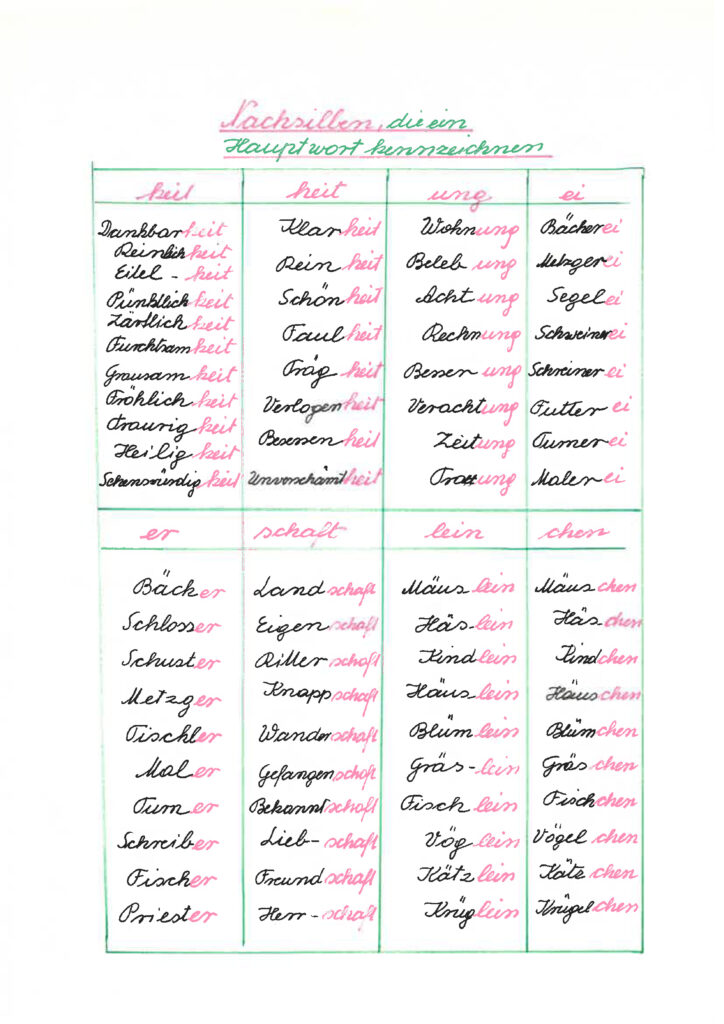 Nachsilben, die ein
Hauptwort kennzeichnen
keit heit ung ei
Dankbarkeit Klarheit Wohnung Bäckerei
Reinlichkeit Reinheit Belebung Metzgerei
Eitel-keit Schönheit Achtung Segelei
Pünktlichkeit Faulheit Rechnung Schweinerei
Zärtlichkeit Trägheit Besserung Schreinerei
Furchtsamkeit Verlogenheit Verachtung Futterei
Grausamkeit Besessenheit Zeitung Turnerei
Fröhlichkeit Unverschämtheit Malerei
Traurigkeit
Heiligkeit
Sehenswürdigkeit
er schaft lein chen
Bäcker Landschaft Mäuslein Mäuschen
Schlosser Eigenschaft Häs-lein Häschen
Schuster Ritterschaft Kindlein Kindchen
Metzger Knappschaft Häuslein Häuschen
Tischler Wanderschaft Blümlein Blümchen
Maler Gefangenschaft Gräs-lein Gräschen
Turner Bekanntschaft Fischlein Fischchen
Schreiber Lieb-schaft Vöglein Vögelchen
Fischer Freundschaft Kätzlein Kätechen
Priester Herr-schaft Krüglein Krügelchen